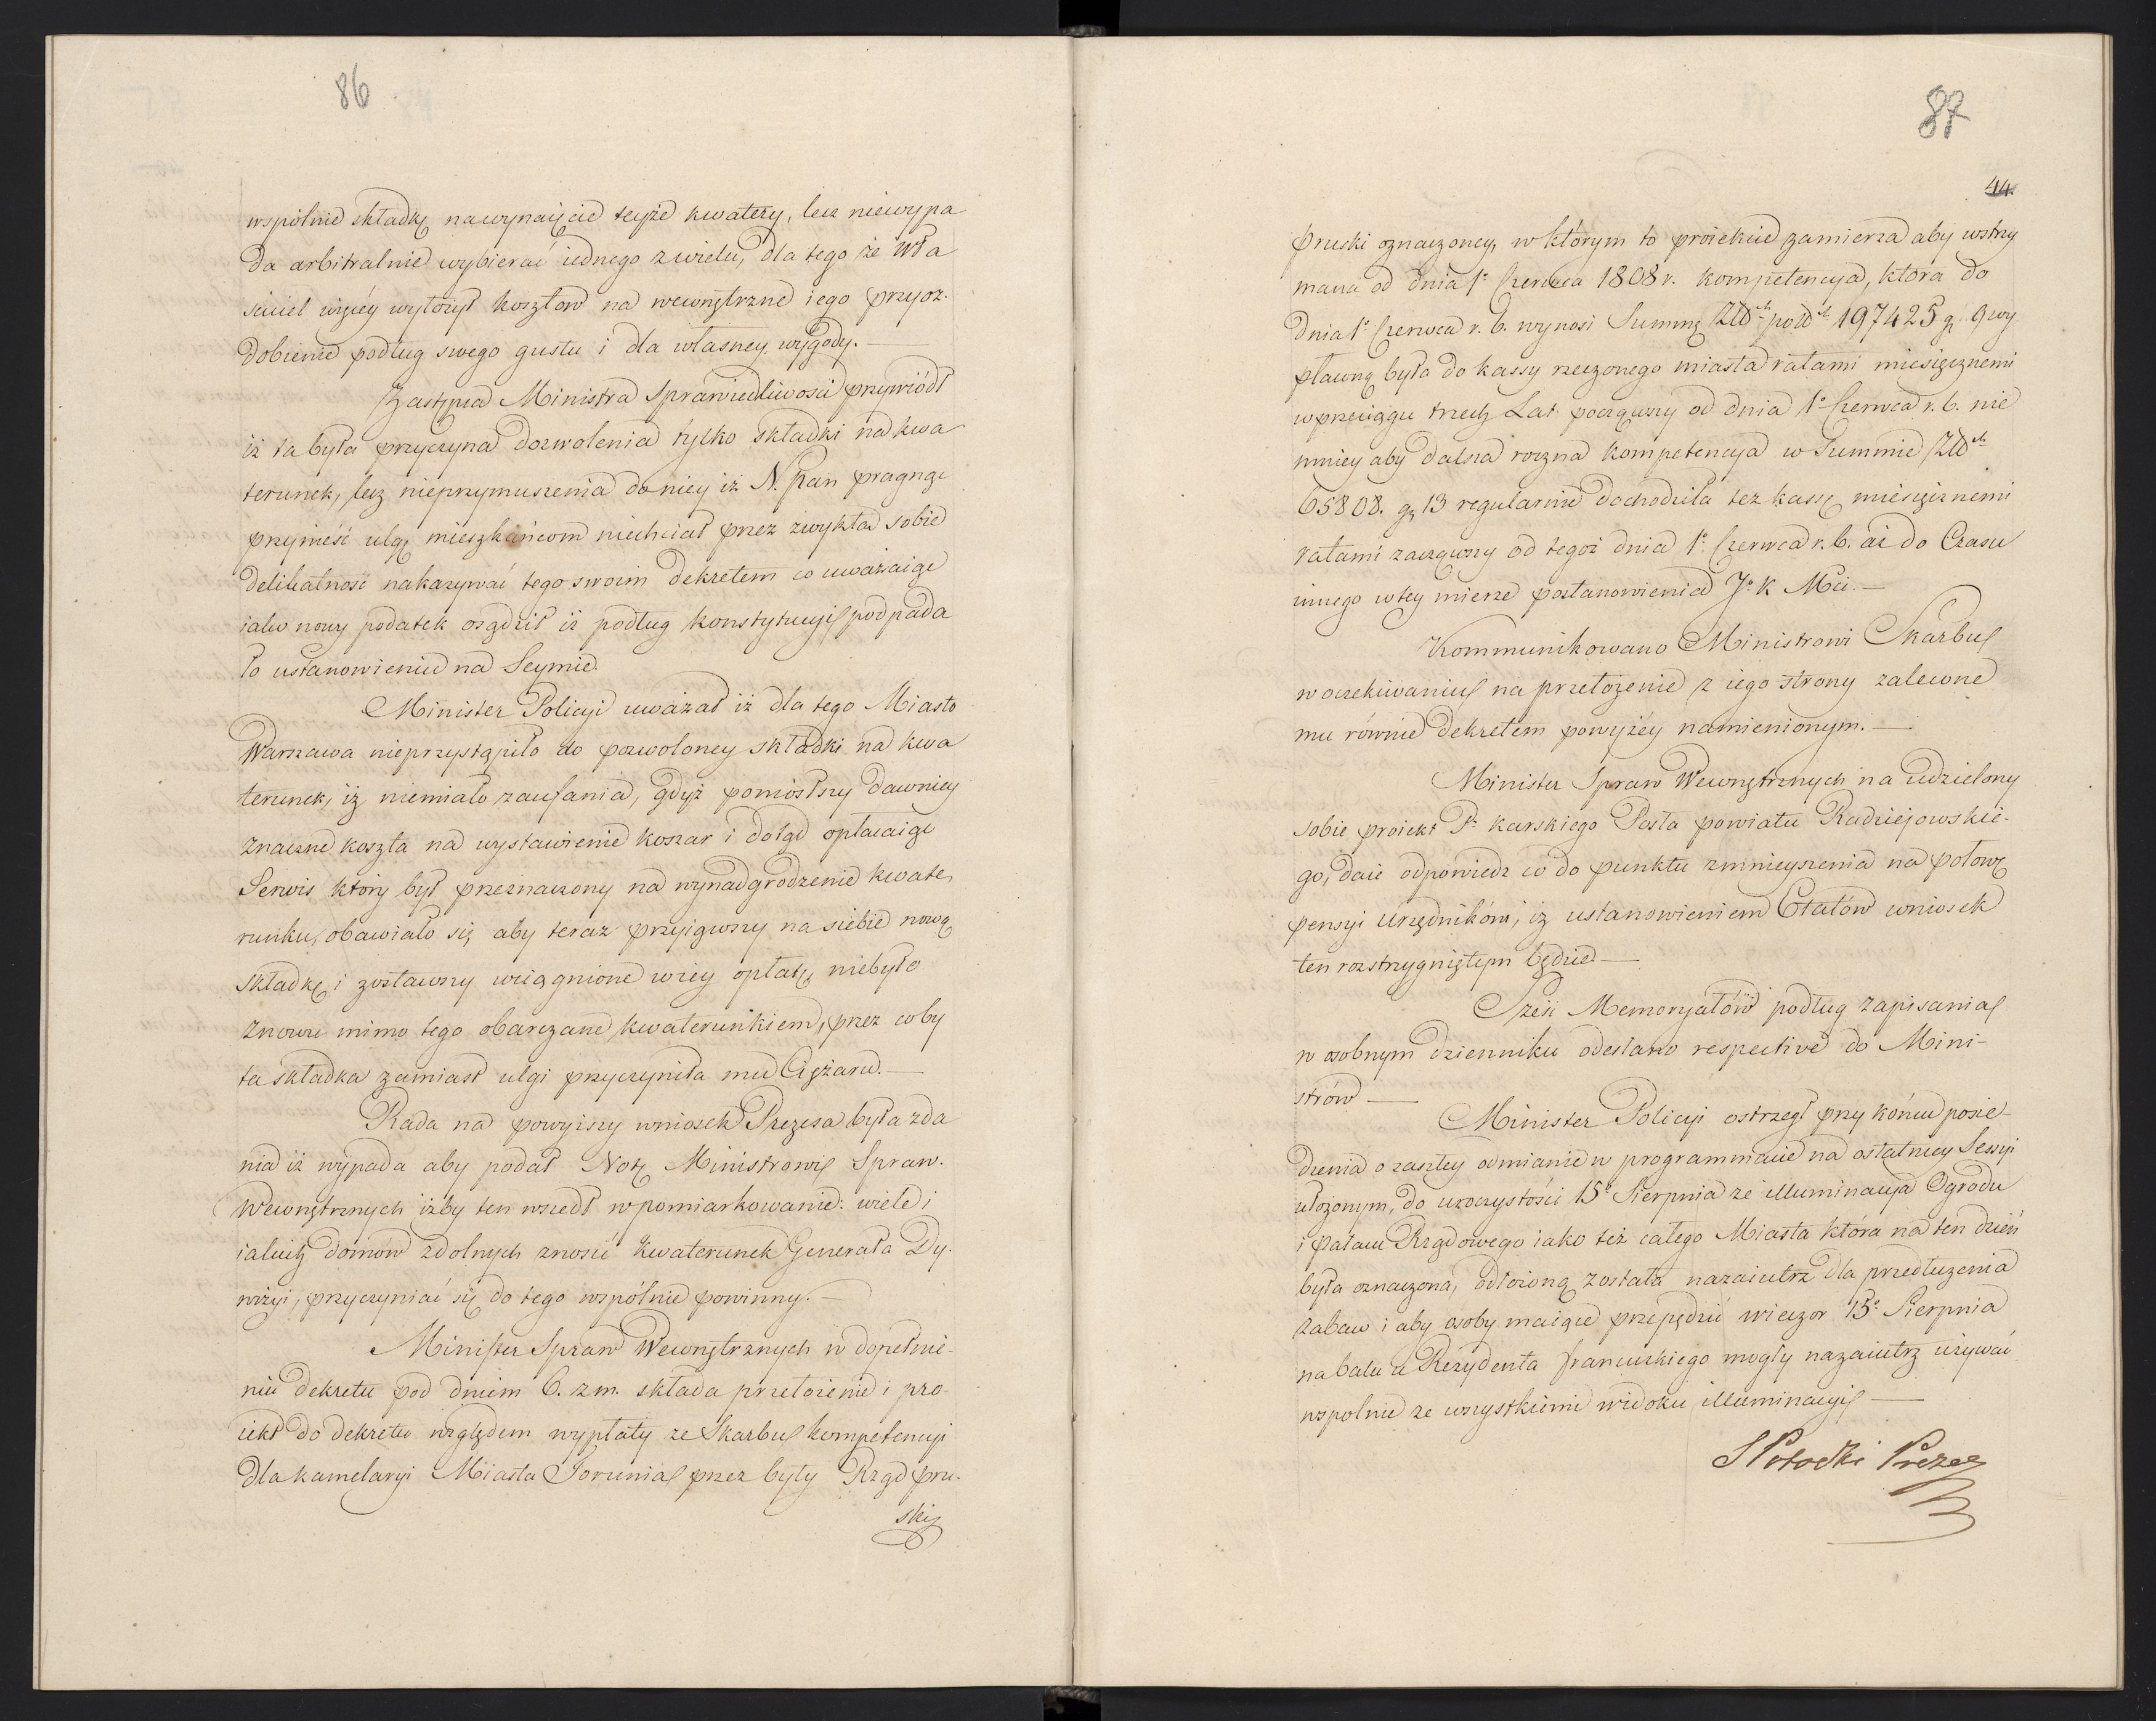 86
wspólnie składkę na wynaięcie teyże kwatery, lecz niewypa
da arbitralnie wybierać iednego z wielu, dla tego że Wła
ściciel więcéy wyłożył kosztow na wewnętrzne iego przyoz-
dobienie podług swego gustu i dla własney wygody. —
Zastępca Ministra Sprawiedliwości przywiódł
iż ta była przyczyna dozwolenia tylko składki na kwa
terunek, lecz nieprzymuszenia do niey iż N. Pan pragnąc
przynieść ulgę mieszkańcom niechciał przez zwykłą sobie
delikatność nakazywać tego swoim dekretem co uważaiąc
iako nowy podatek osądził iż podług Konstytucyi podpada
to ustanowieniu na Seymie.
Minister Policyi uważał iż dla tego Miasto
Warszawa nieprzystąpiło do pozwoloney składki na kwa
terunek, iż niemiało zaufania, gdyż poniósłszy dawniey
znaczne koszta na wystawienie koszar i dotąd opłacaiąc
Serwis który był przeznaczony na wynadgrodzenie kwate,
runku, obawiało się aby teraz przyiąwszy na siebie nową
składkę i zostawszy wciągnione w iey opłatę niebyło
znowu mimo tego obarczane kwaterunkiem, przez coby
ta składka zamiast ulgi przyczyniła mu Ciężaru. —
Rada na powyższy wniosek Prezesa była zda
nia iż wypada aby podał Notę Ministrowi Spraw.
Wewnętrznych iżby ten wszedł w pomiarkowanie: wiele i
iakich domów zdolnych znosić kwaterunek Generała Dy-
wizyi, przyczyniać się do tego wspólnie powinny. —
Minister Spraw Wewnętrznych w dopełnie-
niu dekretu pod dniem 6. z m. składa przełożenie i pro-
iekt do dekretu względem wypłaty ze Skarbu kompetencyi
dla kamelaryi Miasta Torunia przez były Rząd pru-
ski
87
44.
pruski oznaczoney, w którym to proiekcie zamierza aby wstrzy
mana od dnia 1o Czerwca 1808 r. kompetencya, która do
dnia 1o Czerwca r. b. wynosi Summę Złłch polłch 197425 gr 9 wy
płacona była do kassy rzeczonego miasta ratami miesięcznemi
w przeciągu trzech Lat począwszy od dnia 1o Czerwca r. b. nie
mniey aby dalsza roczna kompetencya w Summie Złłch
65808. gr 13 regularnie dochodziła też kassę miesięcznemi
ratami zacząwszy od tegoż dnia 1o Czerwca r. b. aż do Czasu
innego w tey mierze postanowienia Jo K Mci. —
Kommunikowano Ministrowi Skarbu
w oczekiwaniu na przełożenie z iego strony zalecone
mu równie dekretem powyżéy namienionym. —
Minister Spraw Wewnętrznych na udzielony
sobie proiekt P. Karskiego Posła powiatu Radziejowskie-
go, daie odpowiedz co do punktu zmnieyszenia na połowę
pensyi Urzędników, iż ustanowieniem Etatów wniosek
ten rozstrzygniętym będzie —
Sześć Memoryałów podług zapisania
w osobnym dzienniku odesłano respective do Mini-
strów —
Minister Policyi ostrzegł przy końcu posie-
dzenia o zaszłey odmianie w programmacie na ostatniey Sessyi
ułożonym, do uroczystości 15o Sierpnia że illuminacya Ogrodu
i pałacu Rządowego iako też całego Miasta która na ten dzień
była oznaczona, odłożoną została nazaiutrz dla przedłużenia
zabaw i aby osoby maiące przepędzić wieczor 15o Sierpnia
na balu u Rezydenta francuskiego mogły nazaiutrz używać
wspolnie ze wszystkiemi widoku illuminacyi —
S Potocki Prezes